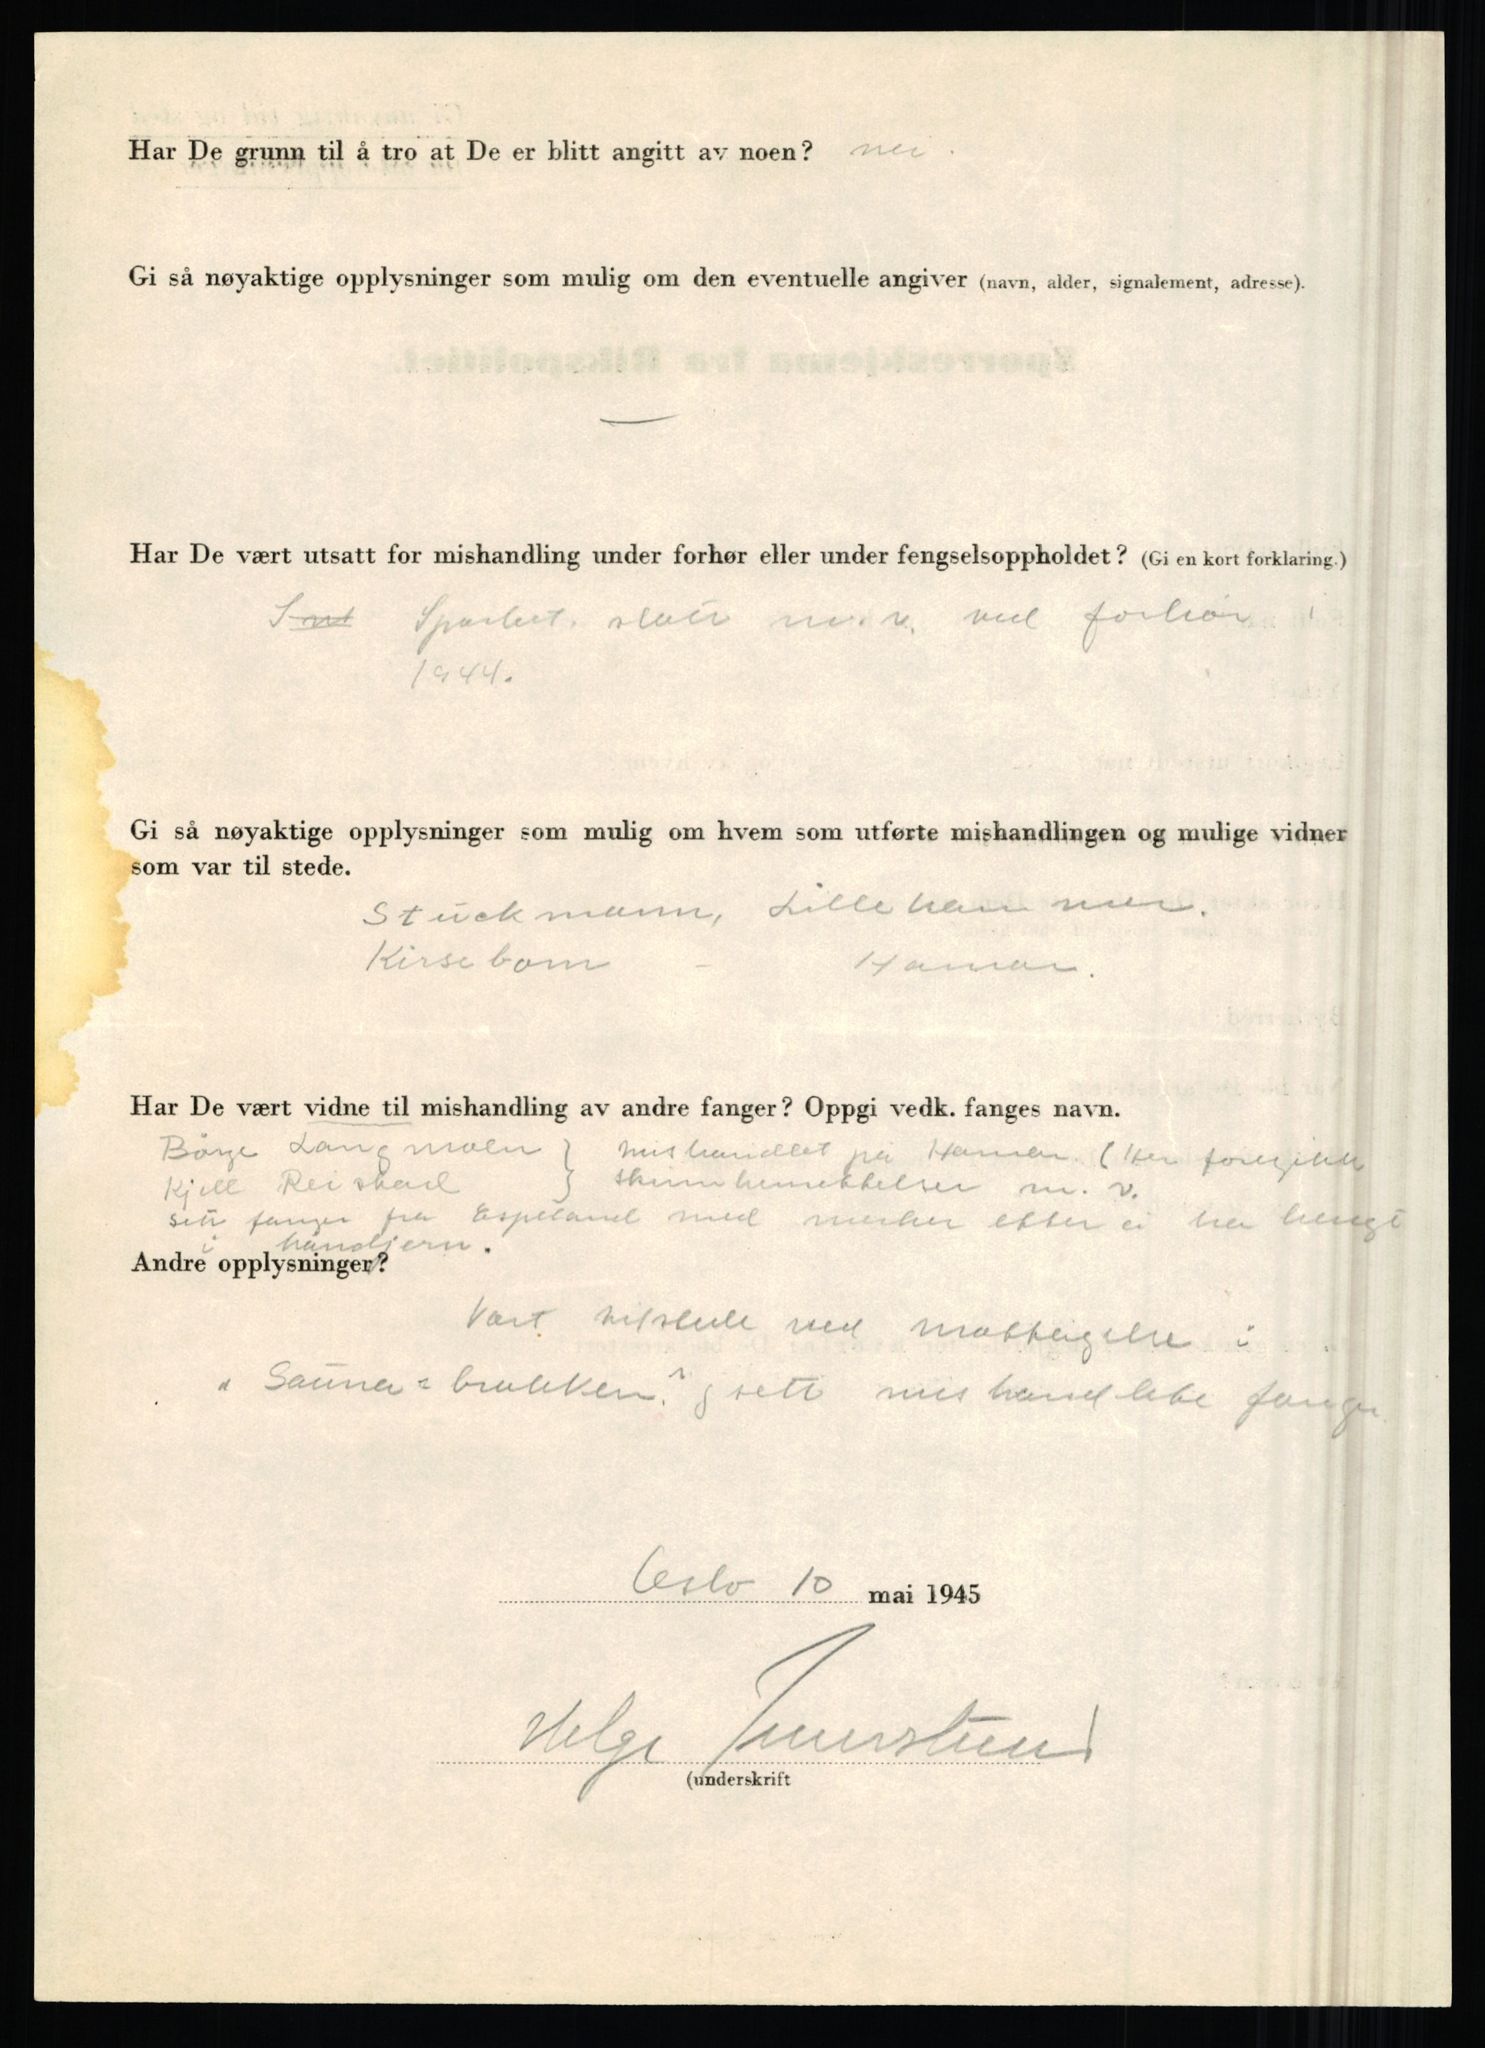 Har De grunn til å tro at De er blitt angitt av noen? nei.
Gi så nøyaktige opplysninger som mulig om den eventuelle angiver (navn, alder, signalement, adresse).
—
Har De vært utsatt for mishandling under forhør eller under fengselsoppholdet? (Gi en kort forklaring.)
Sparket, slått m.v. ved forhør i
1944.
Gi så nøyaktige opplysninger som mulig om hvem som utførte mishandlingen og mulige vidner
som var til stede.
Stuckmann, Lillehammer.
Kirsebom - Hamar.
Har De vært vidne til mishandling av andre fanger? Oppgi vedk. fanges navn.
Børge Langmoen } mishandlet på Hamar. (Her foregikk
Kjell Reistad } skinnhenrettelser m. v.
sett fanger fra Espeland med merker etter å ha hengt
i håndjern.
Andre opplysninger?
Vært tilstede ved mottagelse i
"Sauna-brakken" og sett mishandlede fanger
Oslo 10 mai 1945
Helge
(underskrift